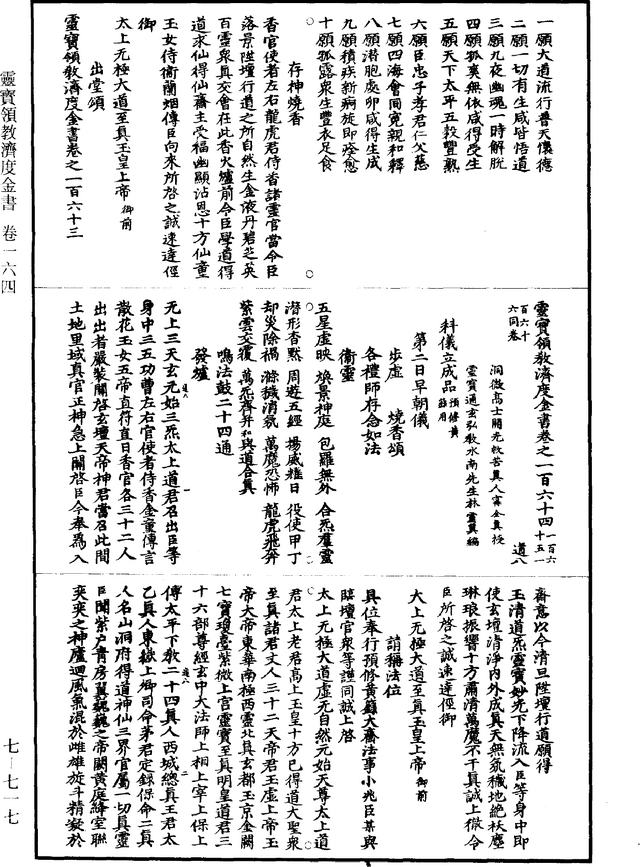 一願大道流行普天懷德
二願一切有生咸皆悟道
三願九夜幽魂一時解脫
四願孤寡無依咸得受生
五願天下太平五穀豐熟
六願臣忠子孝君仁父慈
七願四海會同寬親和釋
八願濳胞處卵咸得生成
九願積疾新病旋即痊愈
十願孤露衆生豐衣足食
存神燒香
香官使者左右龍虎君侍香諸靈官當令臣
落景陞壇行道之所自然生金液丹碧芝英
百靈衆真交會在此香火爐前令臣學道得
道求仙得仙齋主受福幽顯沾恩十方仙童
玉女侍衛蘭烟傳臣向來所啓之誠速達徑
御
太上无極大道至真玉皇上帝 御前
出堂頌
靈寶領教濟度金書卷之一百六十三
靈寶領教濟度金書卷之一百六十四 一百六十五 一百六十六同卷 道八
洞微高士開光救苦真人甯全真授
靈寶通玄弘教水南先生林靈真編
科儀立成品 預修黃籙用
第二日早朝儀
步虛 燒香頌
各禮師存念如法
衞靈
五星虛映 煥景神庭 包羅無外 合炁羣靈
濳形杳黙 周遊五經 揚威耀日 役使甲丁
却災除禍 滌穢消氛 萬魔恐怖 龍虎飛奔
紫雲交覆 萬炁齊并 和與道合真
鳴法鼓二十四通
發爐
无上三天玄元始三炁太上道君召出臣等
身中三五功曹左右官使者侍香金童傳言
散花玉女五帝直符直日香官各三十二人
出出者嚴裝關啓玄壇天帝神君當召此間
土地里域真官正神急上關啓臣今奉爲入
齋意以今清旦陞壇行道願得
玉清道炁靈寶妙光下降流入臣等身中即
使玄壇清淨内外成真天無氛穢地絶妖塵
琳琅振響十方肅清萬魔不干真誠上徹令
臣所啓之誠速達徑御
太上无極大道至真玉皇上帝 御前
請稱法位
具位奉行預修黃籙大齋法事小兆臣某與
臨壇官衆等謹同誠上啓
太上无極大道虛无自然元始天尊太上道
君太上老君高上玉皇十方已得道大聖衆
至真諸君丈人三十二天帝君玉虛上帝玉
帝大帝東華南極西靈北真玄都玉京金闕
七寶瓊臺紫微上宮靈寶至真明皇道君三
十六部尊經玄中大法師上相上宰上保上
傅太平下教二十四真人西城總真王君太
乙真人東嶽上卿司命茅君定録保命二真
人名山洞府得道神仙三界官屬一切真靈
臣聞紫戶青房翼巍巍之帝闕黃庭絳室聯
奕奕之神廬迴風氣混於雌雄旋斗精凝於
靈寶領教濟度金書 卷一六四
七—七一七